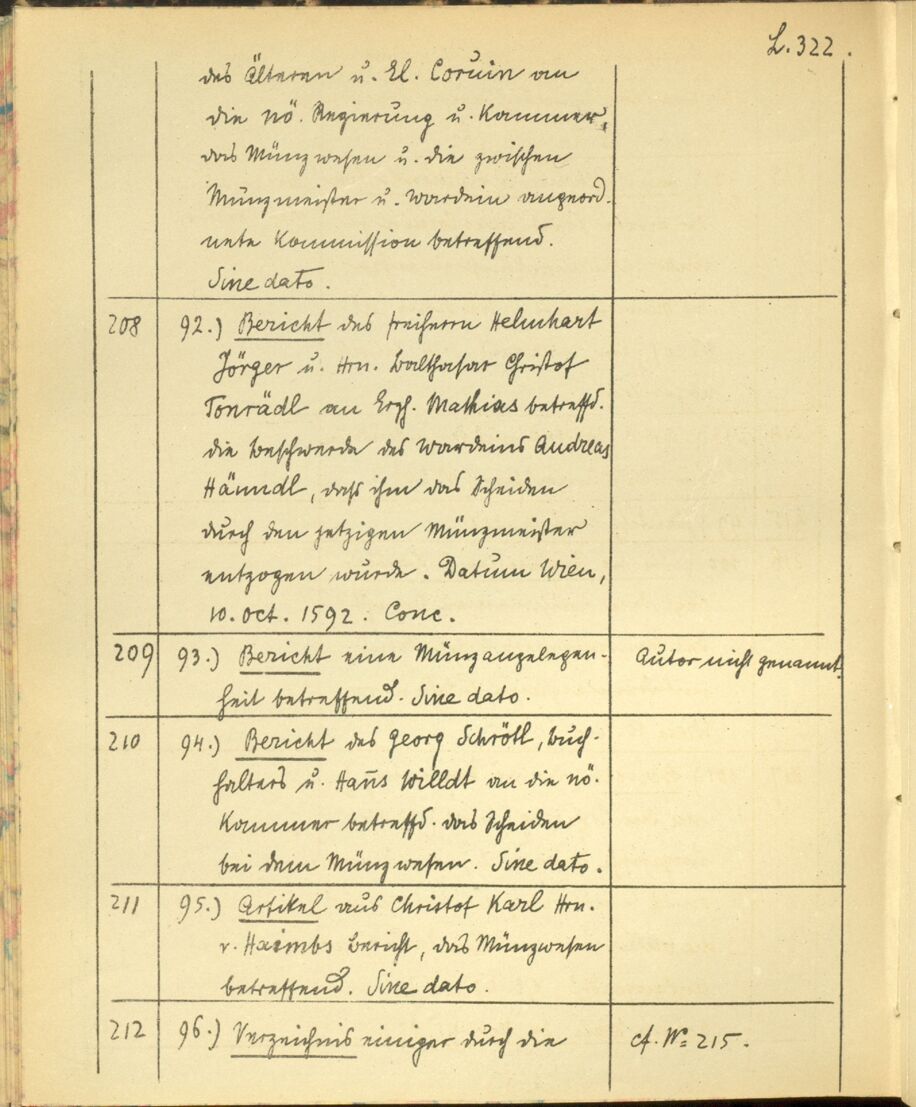 L. 322.
des Älteren u. El. Coruin an
die nö. Regierung u. Kammer,
das Münzwesen u. die zwischen
Münzmeister u. Wardein angeord-
nete Kommission betreffend.
Sine dato.
208 92.) Bericht des Freiherrn Helmhart
Jörger u. Hrn. Balthasar Christof
Tonrädl an Erzh. Mathias betreffd.
die Beschwerde des Wardeins Andreas
Hänndl, daß ihm das Scheiden
durch den jetzigen Münzmeister
entzogen wurde. Datum Wien,
10. Oct. 1592. Conc.
209 93.) Bericht eine Münzangelegen- Autor nicht genannt.
heit betreffend. Sine dato.
210 94.) Bericht des Georg Schröttl, Buch-
halters u. Hanns Willdt an die nö.
Kammer betreffd. das Scheiden
bei dem Münzwesen. Sine dato.
211 95.) Artikel aus Christof Karl Hrn.
v. Haimbs Bericht, das Münzwesen
betreffend. Sine dato.
212 96.) Verzeichnis einiger durch die cf. No: 215.